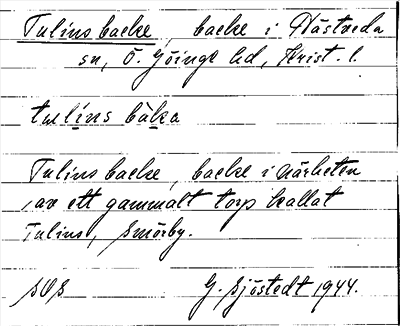 Tulins backe, backe i Hästveda
sn, Ö. Göinge hd, Krist. l.
tulins báka
Tulins backe, backe i närheten
av ett gammalt torp kallat
Tulins, Smörby.
SOS
G. Sjöstedt 1944.